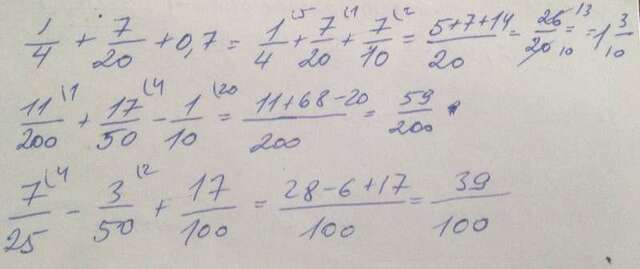 1/4 + 7/20 + 0,7 = 1/4 (5 + 7/20 (1 + 7/10 (2 = (5+7+14)/20 = 26/20 13/10 = 1 3/10
11/200 (1 + 17/50 (4 - 1/10 (20 = (11+68-20)/200 = 59/200
7/25 (4 - 3/50 (2 + 17/100 = (28-6+17)/100 = 39/100